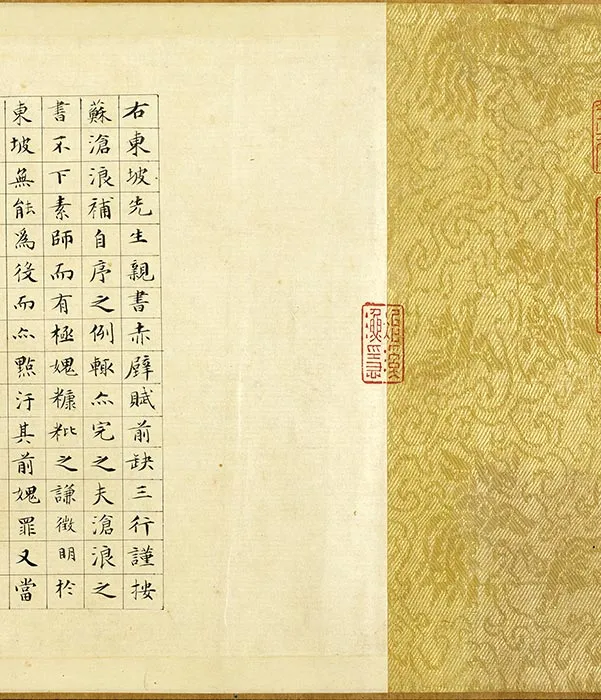 右東坡先生親書赤壁賦前缺三行謹按
蘇滄浪補自序之例輒亦完之夫滄浪之
書不下素師而有極媿糠粃之謙徵明於
東坡無能為役而亦點汙其前媿罪又當